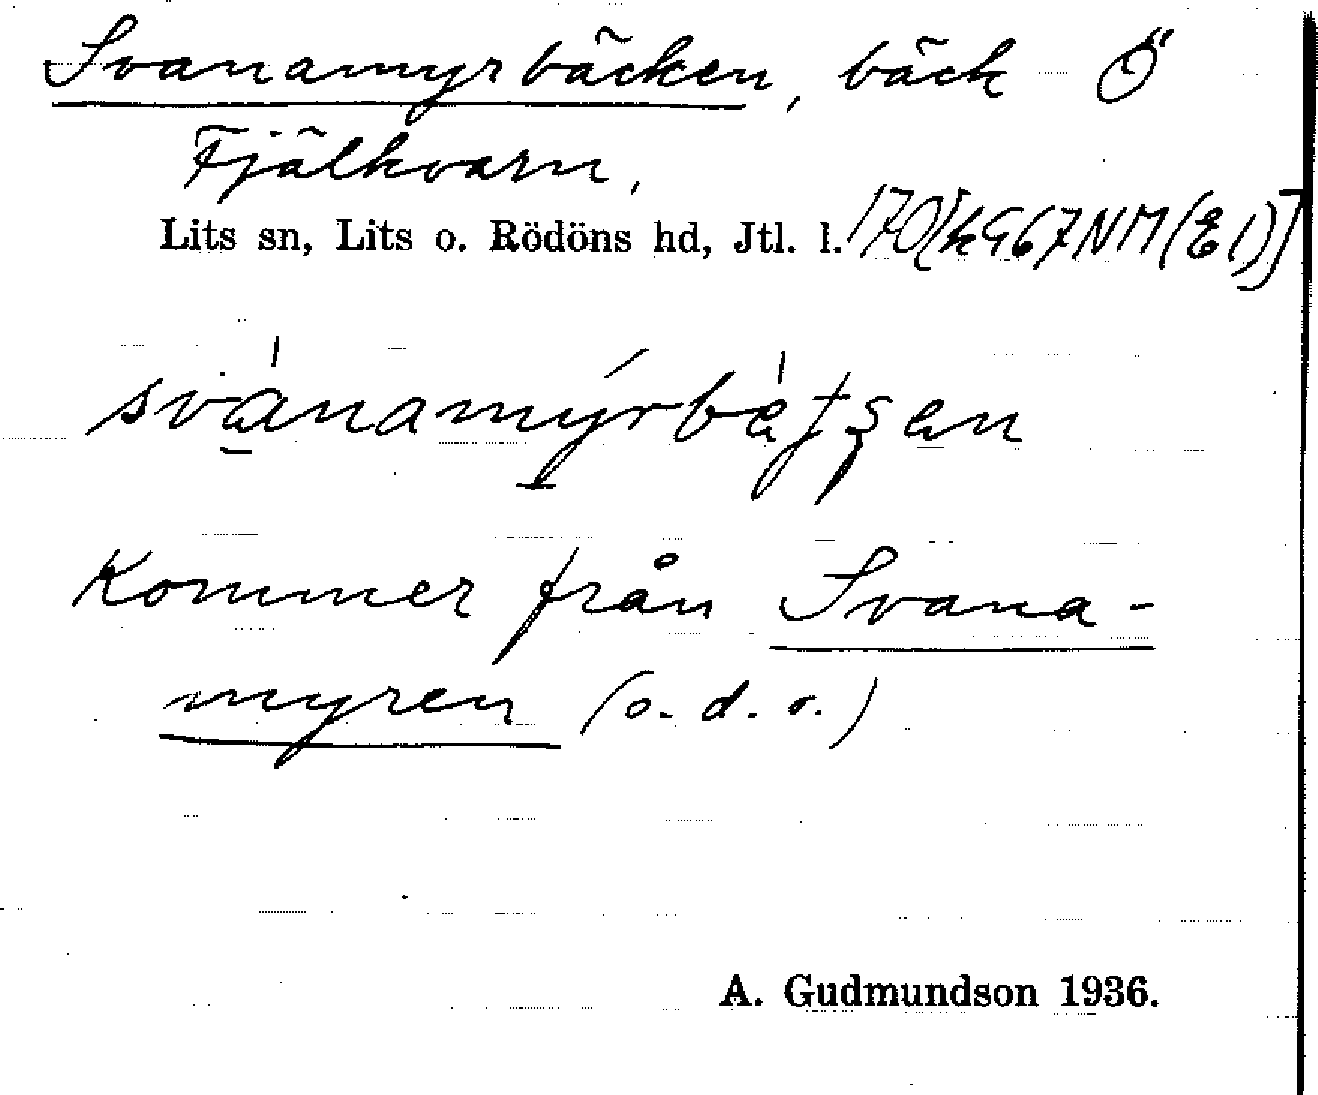 Svanamyrbäcken, bäck Ö
Fjälkvarn,
Lits sn, Lits o. Rödöns hd, Jtl. l. 170[k967NM(E1)]
Kommer från Svana-
myren (o.d.r.)
A. Gudmundson 1936.